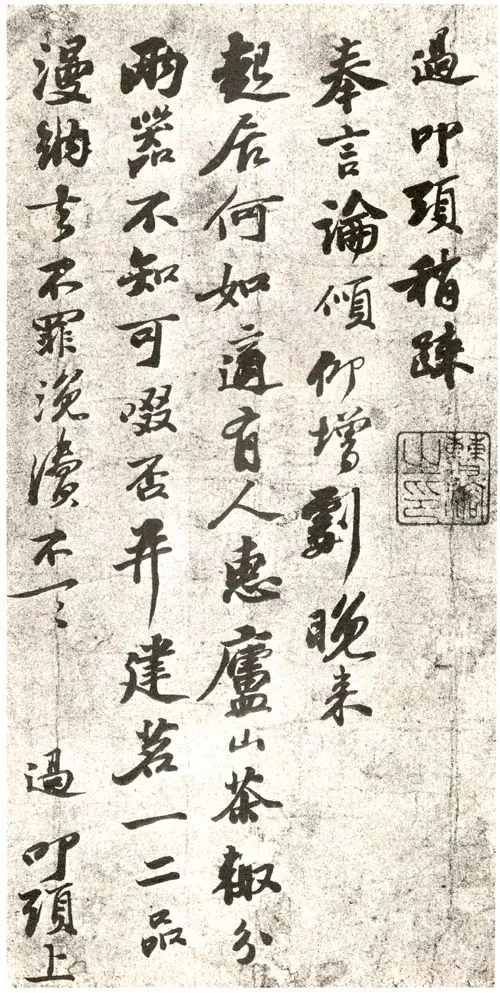 過叩頭稍疎
奉言論傾仰增劇晚来
起居何如適有人惠廬山茶輙分
兩器不知可啜否并建茗一二品
漫納去不罪浼瀆不一一
過 叩頭上